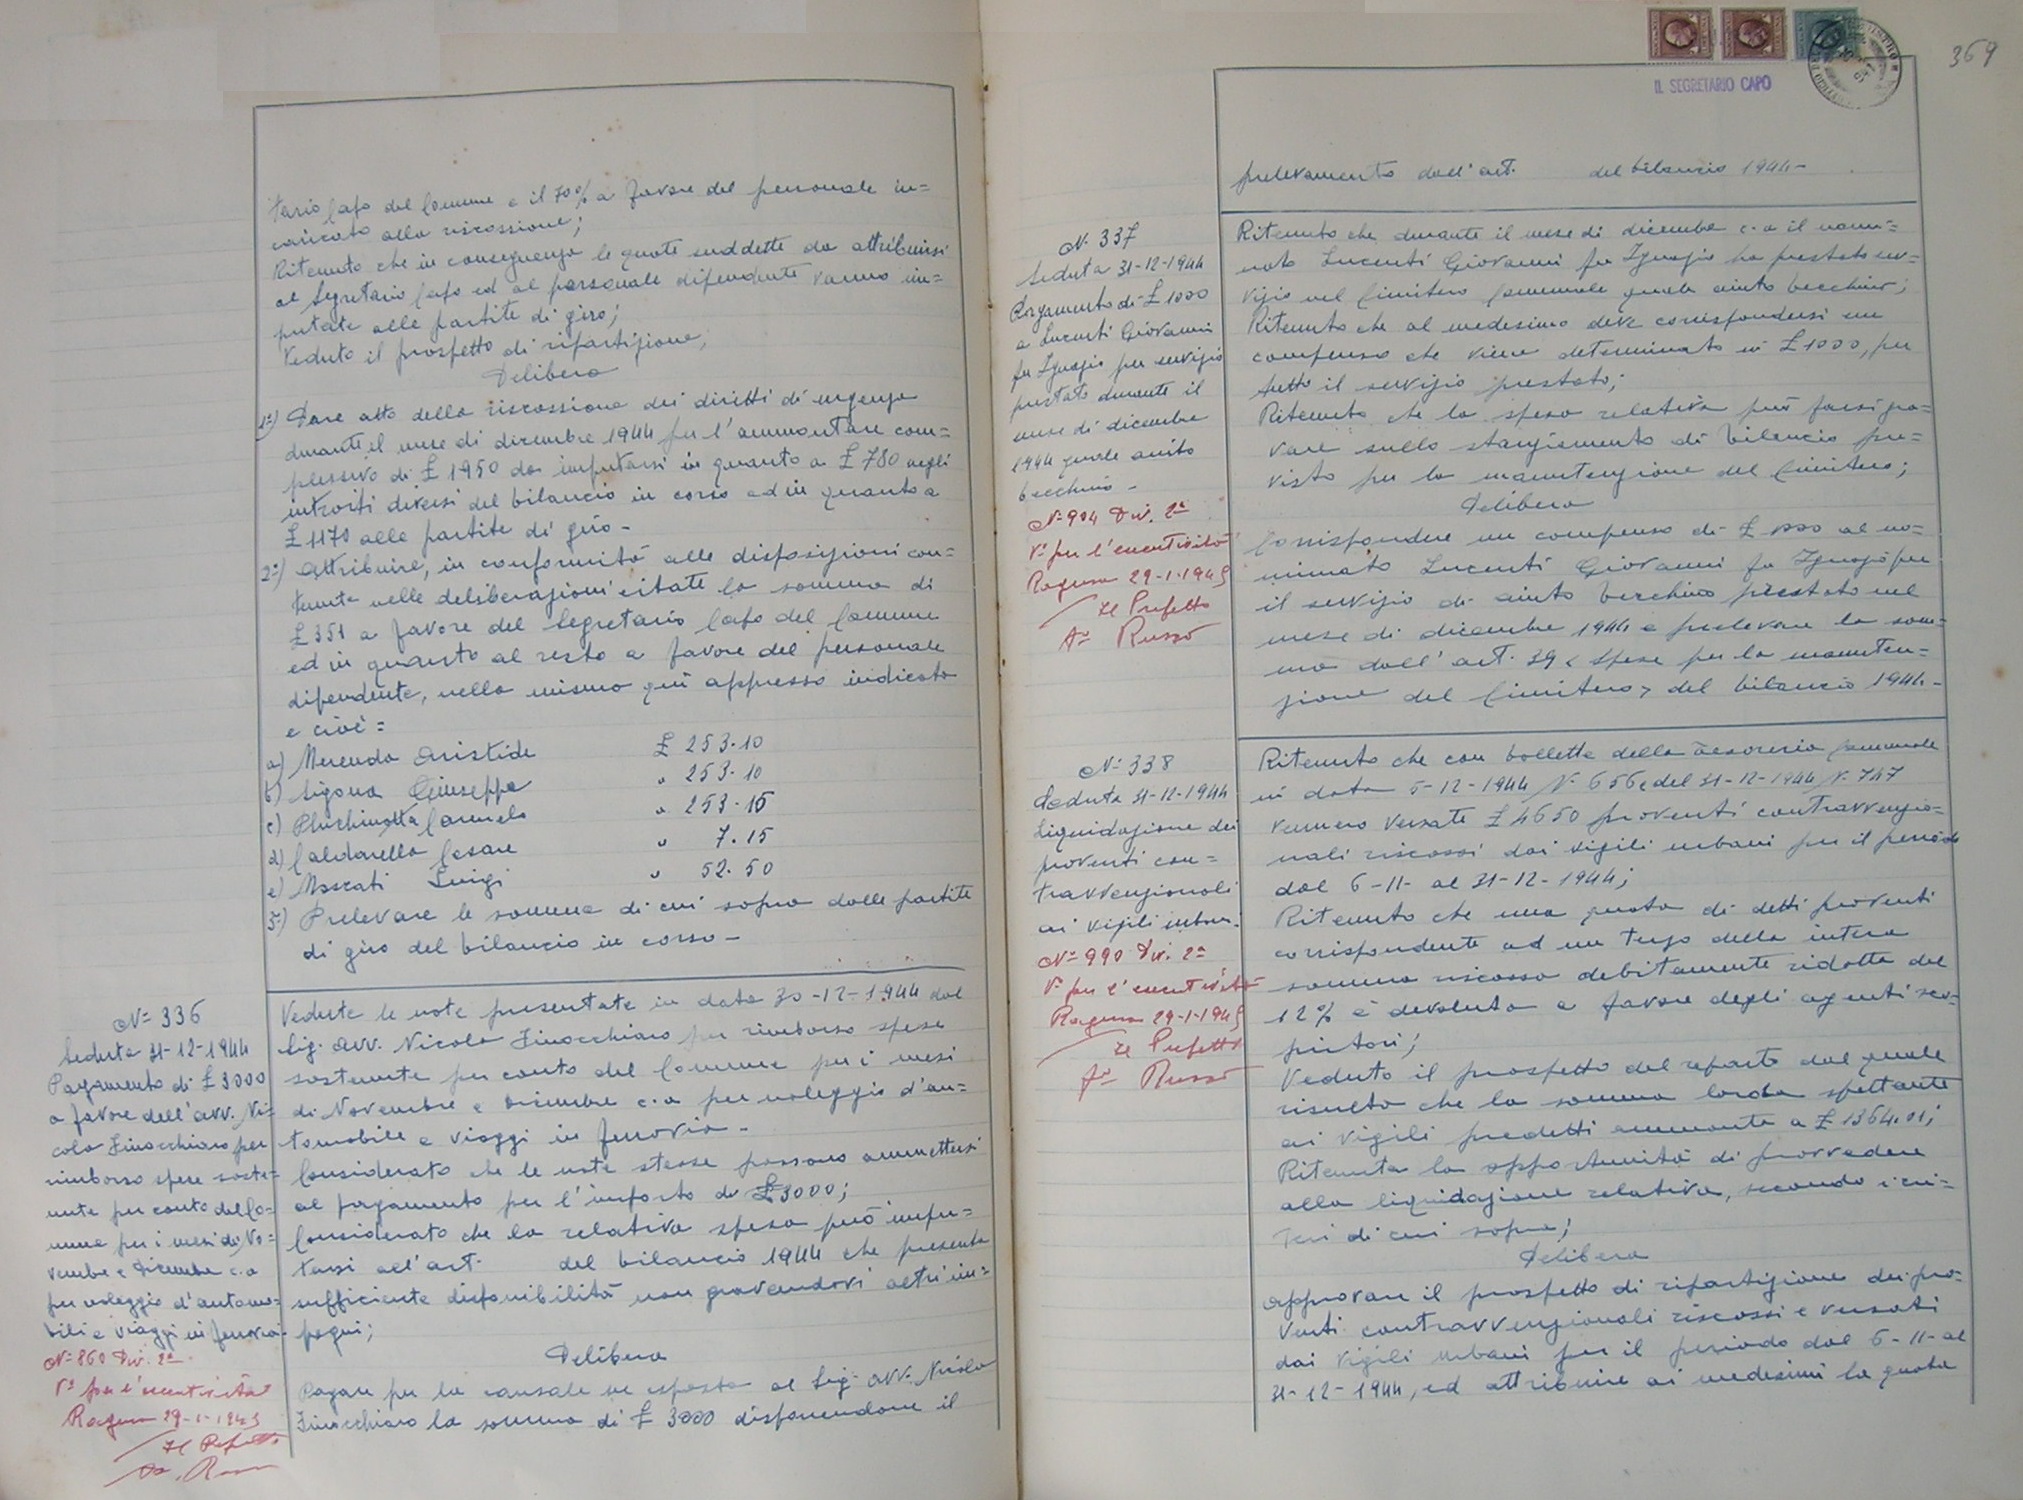 tario Capo del Comune e il 70% a favore del personale in=
caricato alla riscossione;
Ritenuto che in conseguenza le quote suddette da attribuirsi
al Segretario Capo ed al personale dipendente vanno im=
putate alle partite di giro;
Veduto il prospetto di ripartizione;
Delibera
1°) Dare atto della riscossione dei diritti di urgenza
durante il mese di dicembre 1944 per l'ammontare com=
plessivo di £ 1950 da imputarsi in quanto a £ 780 negli
introiti diversi del bilancio in corso ed in quanto a
£ 1170 alle partite di giro -
2°) Attribuire, in conformità alle disposizioni con=
tenute nelle deliberazioni citate la somma di
£ 351 a favore del Segretario Capo del Comune
ed in quanto al resto a favore del personale
dipendente, nella misura qui appresso indicata
e cioè =
a) Merenda Aristide £ 253.10
b) Sigona Giuseppe " 253.10
c) Pluchinotta Carmelo " 253.15
d) Caldarella Cesare " 7.15
e) Moscati Luigi " 52.50
3°) Prelevare le somme di cui sopra dalle partite
di giro del bilancio in corso -
N° 336
Seduta 31-12-1944
Pagamento di £ 3000
a favore dell'avv. Ni=
cola Finocchiaro per
rimborso spese soste=
nute per conto del Co=
mune per i mesi di No=
vembre e Dicembre c.a
per noleggio d'automo=
bili e viaggi in ferrovia -
N° 860 Div. 2ª
V° per l'esecutività
Ragusa 29-1-1945
Il Prefetto
Vedute le note presentate in data 30-12-1944 dal
Sig. Avv. Nicola Finocchiaro per rimborso spese
sostenute per conto del Comune per i mesi
di Novembre e Dicembre c.a per noleggio d'au=
tomobile e viaggi in ferrovia -
Considerato che le note stesse possono ammettersi
al pagamento per l'importo di £ 3000;
Considerato che la relativa spesa può impu=
tarsi all'art. del bilancio 1944 che presenta
sufficiente disponibilità non gravandovi altri im=
pegni;
Delibera
Pagare per la causale in esposta al Sig. Avv. Nicola
Finocchiaro la somma di £ 3000 disponendone il
IL SEGRETARIO CAPO
369
prelevamento dall'art. del bilancio 1944 -
N° 337
Seduta 31-12-1944
Pagamento di £ 1000
a Lucenti Giovanni
fu Ignazio per servizio
prestato durante il
mese di dicembre
1944 quale aiuto
becchino -
N° 904 Div. 2ª
V° per l'esecutività
Ragusa 29-1-1945
Il Prefetto
Fto Russo
Ritenuto che durante il mese di dicembre c.a il nomi=
nato Lucenti Giovanni fu Ignazio ha prestato ser=
vizio nel Cimitero Comunale quale aiuto becchino;
Ritenuto che al medesimo deve corrispondersi un
compenso che viene determinato in £ 1000, per
tutto il servizio prestato;
Ritenuto che la spesa relativa può farsi gra=
vare sullo stanziamento di bilancio pre=
visto per la manutenzione del Cimitero;
Delibera
Corrispondere un compenso di £ 1000 al no=
minato Lucenti Giovanni fu Ignazio per
il servizio di aiuto becchino prestato nel
mese di dicembre 1944 e prelevare la som=
ma dall'art. 39 « Spese per la manuten=
zione del Cimitero » del bilancio 1944 -
N° 338
Seduta 31-12-1944
Liquidazione dei
proventi con=
travvenzionali
ai vigili urbani
N° 990 Div. 2ª
V° per l'esecutività
Ragusa 29-1-1945
Il Prefetto
Fto Russo
Ritenuto che con bollette della Tesoreria Comunale
in data 5-12-1944 N. 656 e del 31-12-1944 N. 747
vennero versate £ 4650 proventi contravvenzio=
nali riscossi dai vigili urbani per il periodo
dal 6-11- al 31-12-1944;
Ritenuto che una quota di detti proventi
corrispondente ad un terzo della intera
somma riscossa debitamente ridotta del
12% è devoluta a favore degli agenti sco=
pritori;
Veduto il prospetto del reparto dal quale
risulta che la somma lorda spettante
ai vigili predetti ammonta a £ 1364.01;
Ritenuta la opportunità di provvedere
alla liquidazione relativa, secondo i cri=
teri di cui sopra;
Delibera
Approvare il prospetto di ripartizione dei pro=
venti contravvenzionali riscossi e versati
dai vigili urbani per il periodo dal 6-11- al
31-12-1944, ed attribuire ai medesimi la quota